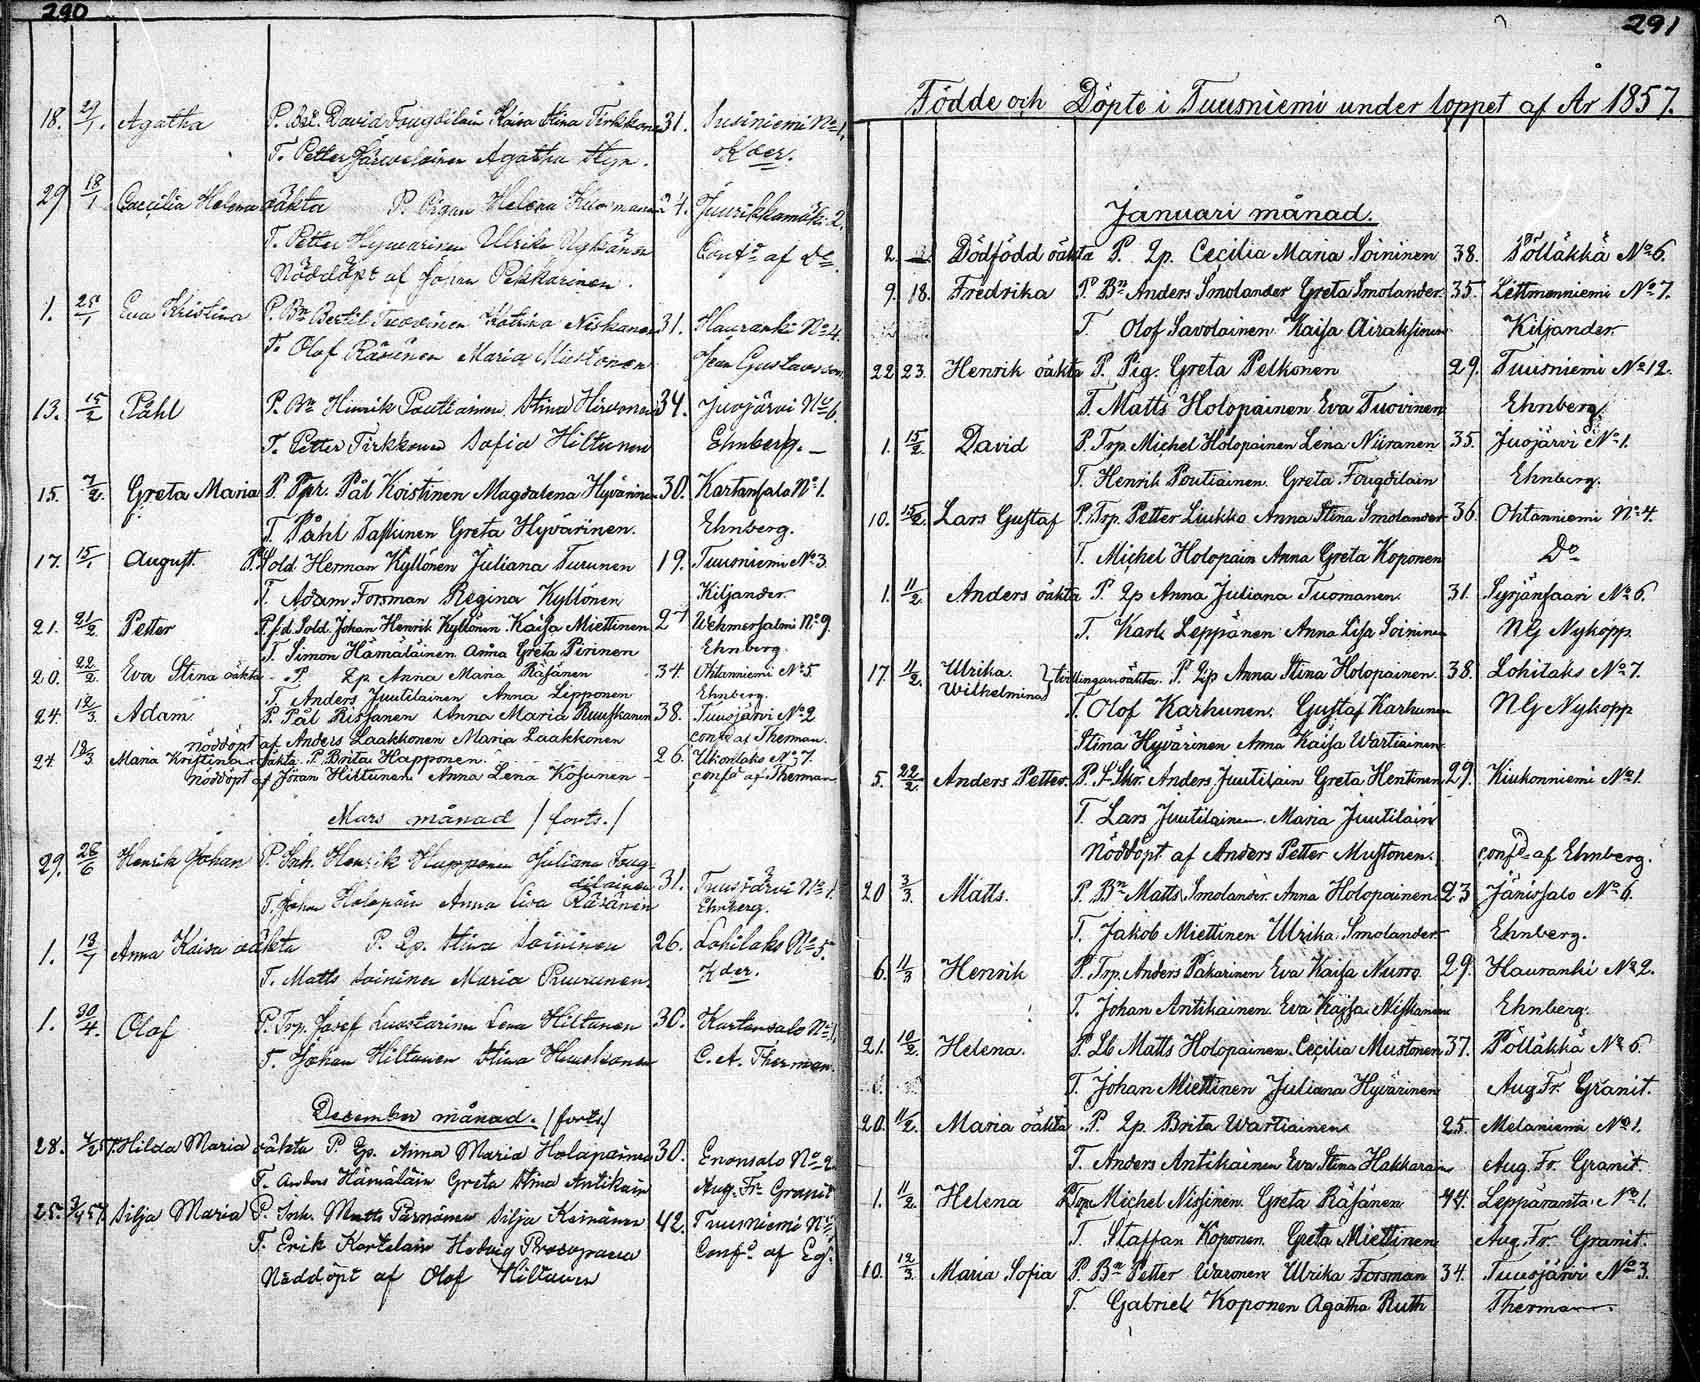 290
18. 29/1. Agatha P. Bst. David Fougdilain Kaisa Stina Tirkkonen 31. Susiniemi No 1.
T. Petter Järvelainen Agatha Hyn. Kder.
29 18/1 Caecilia Helena oäkta P. Pigan Helena 24. Juurikkamäki 2.
T. Petter Hyvarinen Ulrika Nykänen Confd af
Nöddöpt af Jöran Pekkarinen.
1. 25/1 Eva Kristina P. Bn Bertil Tuovinen Katrina Niskanen 31. Hauranki No 4.
T. Olof Räsänen Maria Mustonen Jean Gustavsson
13. 15/2 Påhl P. Bn Hinrik Poutiainen Stina Hirvonen 34. Juojärvi No 6.
T. Petter Tirkkonen Sofia Hiltunen Ehnberg.
15. 7/2. Greta Maria P. Ppr. Pål Koistinen Magdalena Hyvärinen 30. Kartansalo No 1.
T. Påhl Taskinen Greta Hyvärinen. Ehnberg.
17. 15/1 August. P. Sold. Herman Kyllönen Juliana Turunen 19. Tuusniemi No 3.
T. Adam Forsman Regina Kyllönen Kiljander
21. 21/2 Petter P. f.d. Sold. Johan Henrik Kyllönen Kaisa Miettinen 27 Wehmersalmi No 9.
T. Simon Hämäläinen Anna Greta Pirinen Ehnberg.
20. 22/2. Eva Stina oäkta P. Qp Anna Maria Räsänen 34. Ohtanniemi No 5.
T. Anders Juutilainen Anna Lipponen Ehnberg.
24. 12/3 Adam. P. Pål Rissanen Anna Maria Ruuskanen 38. Tuusjärvi No 2
nöddöpt af Anders Laakkonen Maria Laakkonen confd af Therman.
24. 12/3 Maria Kristina oäkta P. Brita Happonen. 26. Ukonlaks No 7.
nöddöpt af Jöran Hiltunen Anna Lena Kosunen confd af Therman
Mars månad /forts./
29. 28/6 Henrik Johan P. Inh. Henrik Happonen Juliana Foug-
dilainen 31. Tuusjärvi No 1.
T. Johan Holopain Anna Lisa Räsänen Ehnberg.
1. 13/7 Anna Kaisa oäkta P. Qp. Stina Soininen 26. Lohilaks No 5.
T. Matts Soininen Maria Puurunen. Kder.
1. 30/4. Olof P. Trp. Josef Luostarinen Lena Hiltunen 30. Kartansalo No 1,
T. Johan Hiltunen Stina Huuskonen C. A. Therman.
December månad. /forts/
28. 7/2 57. Hilda Maria oäkta P. Qp. Anna Maria Holopainen 30. Enonsalo No 2
T. Anders Hämäläin Greta Stina Antikain Aug. Fr. Granit
25. 3/4 57 Silja Maria P. Inh. Matts Pärnänen Silja Keinänen 42. Tuusniemi No
T. Erik Kortelain Hedvig Confd. af
Nöddöpt af Olof Hiltunen
291
Födde och Döpte i Tuusniemi under loppet af År 1857.
Januari månad.
2. Dödfödd oäkta P. Qp. Cecilia Maria Soininen 38. Pöllakkä No 6.
9. 18. Fredrika P. Bn Anders Smolander Greta Smolander 35. Lettmenniemi No 7.
T. Olof Savolainen Kaisa Airaksinen Kiljander.
22 23. Henrik oäkta P. Pig. Greta Pelkonen 29. Tuusniemi No 12.
T. Matts Holopainen Eva Tuovinen Ehnberg.
1. 15/2. David P. Trp. Michel Holopainen Lena Niiranen 35. Juojärvi No 1.
T. Henrik Poutiainen Greta Fougdilain Ehnberg.
10. 15/2. Lars Gustaf P. Trp. Petter Liukko Anna Stina Smolander 36. Ohtanniemi No 4.
T. Michel Holopain Anna Greta Koponen Do
1. 11/2. Anders oäkta P. Qp Anna Juliana Tuomanen. 31. Syrjänsaari No 6.
T. Karl Leppänen Anna Lisa Soininen NG Nykopp.
17. 11/2. Ulrika Wilhelmina } tvillingar oäkta. P. Qp Anna Stina Holopainen. 38. Lohilaks No 7.
T. Olof Karhunen. Gustaf Karhunen NG Nykopp
Stina Hyvärinen Anna Kaisa Wartiainen
5. 22/2. Anders Petter. P. S-Skr. Anders Juutilain Greta Hentinen 29. Kiukonniemi No 1.
T. Lars Juutilainen Maria Juutilain
Nöddöpt af Anders Petter Mustonen. confd af Ehnberg.
20 3/3. Matts. P. Bn Matts Smolander. Anna Holopainen 23 Jänissalo No 6.
T. Jakob Miettinen Ulrika Smolander Ehnberg.
6. 11/3 Henrik P. Trp. Anders Pakarinen Eva Kaisa Nurro 29. Hauranki No 2.
T. Johan Antikainen. Eva Kaisa Niskanen Ehnberg.
21. 10/2. Helena. P. Lb Matts Holopainen. Cecilia Mustonen 37. Pöllakkä No 6.
T. Johan Miettinen Juliana Hyvärinen Aug Fr Granit.
20. 11/2. Maria oäkta P. Qp. Brita Wartiainen 25. Melaniemi No 1.
T. Anders Antikainen Eva Stina Hakkarain Aug. Fr. Granit.
1. 11/2. Helena P. Trp. Michel Nissinen. Greta Räsänen 44. Leppäranta No 1.
T. Staffan Koponen. Greta Miettinen Aug. Fr. Granit.
10. 12/3. Maria Sofia P. Bn Petter Waronen Ulrika Forsman 34. Tuusjärvi No 3.
T. Gabriel Koponen Agatha Ruth Therman